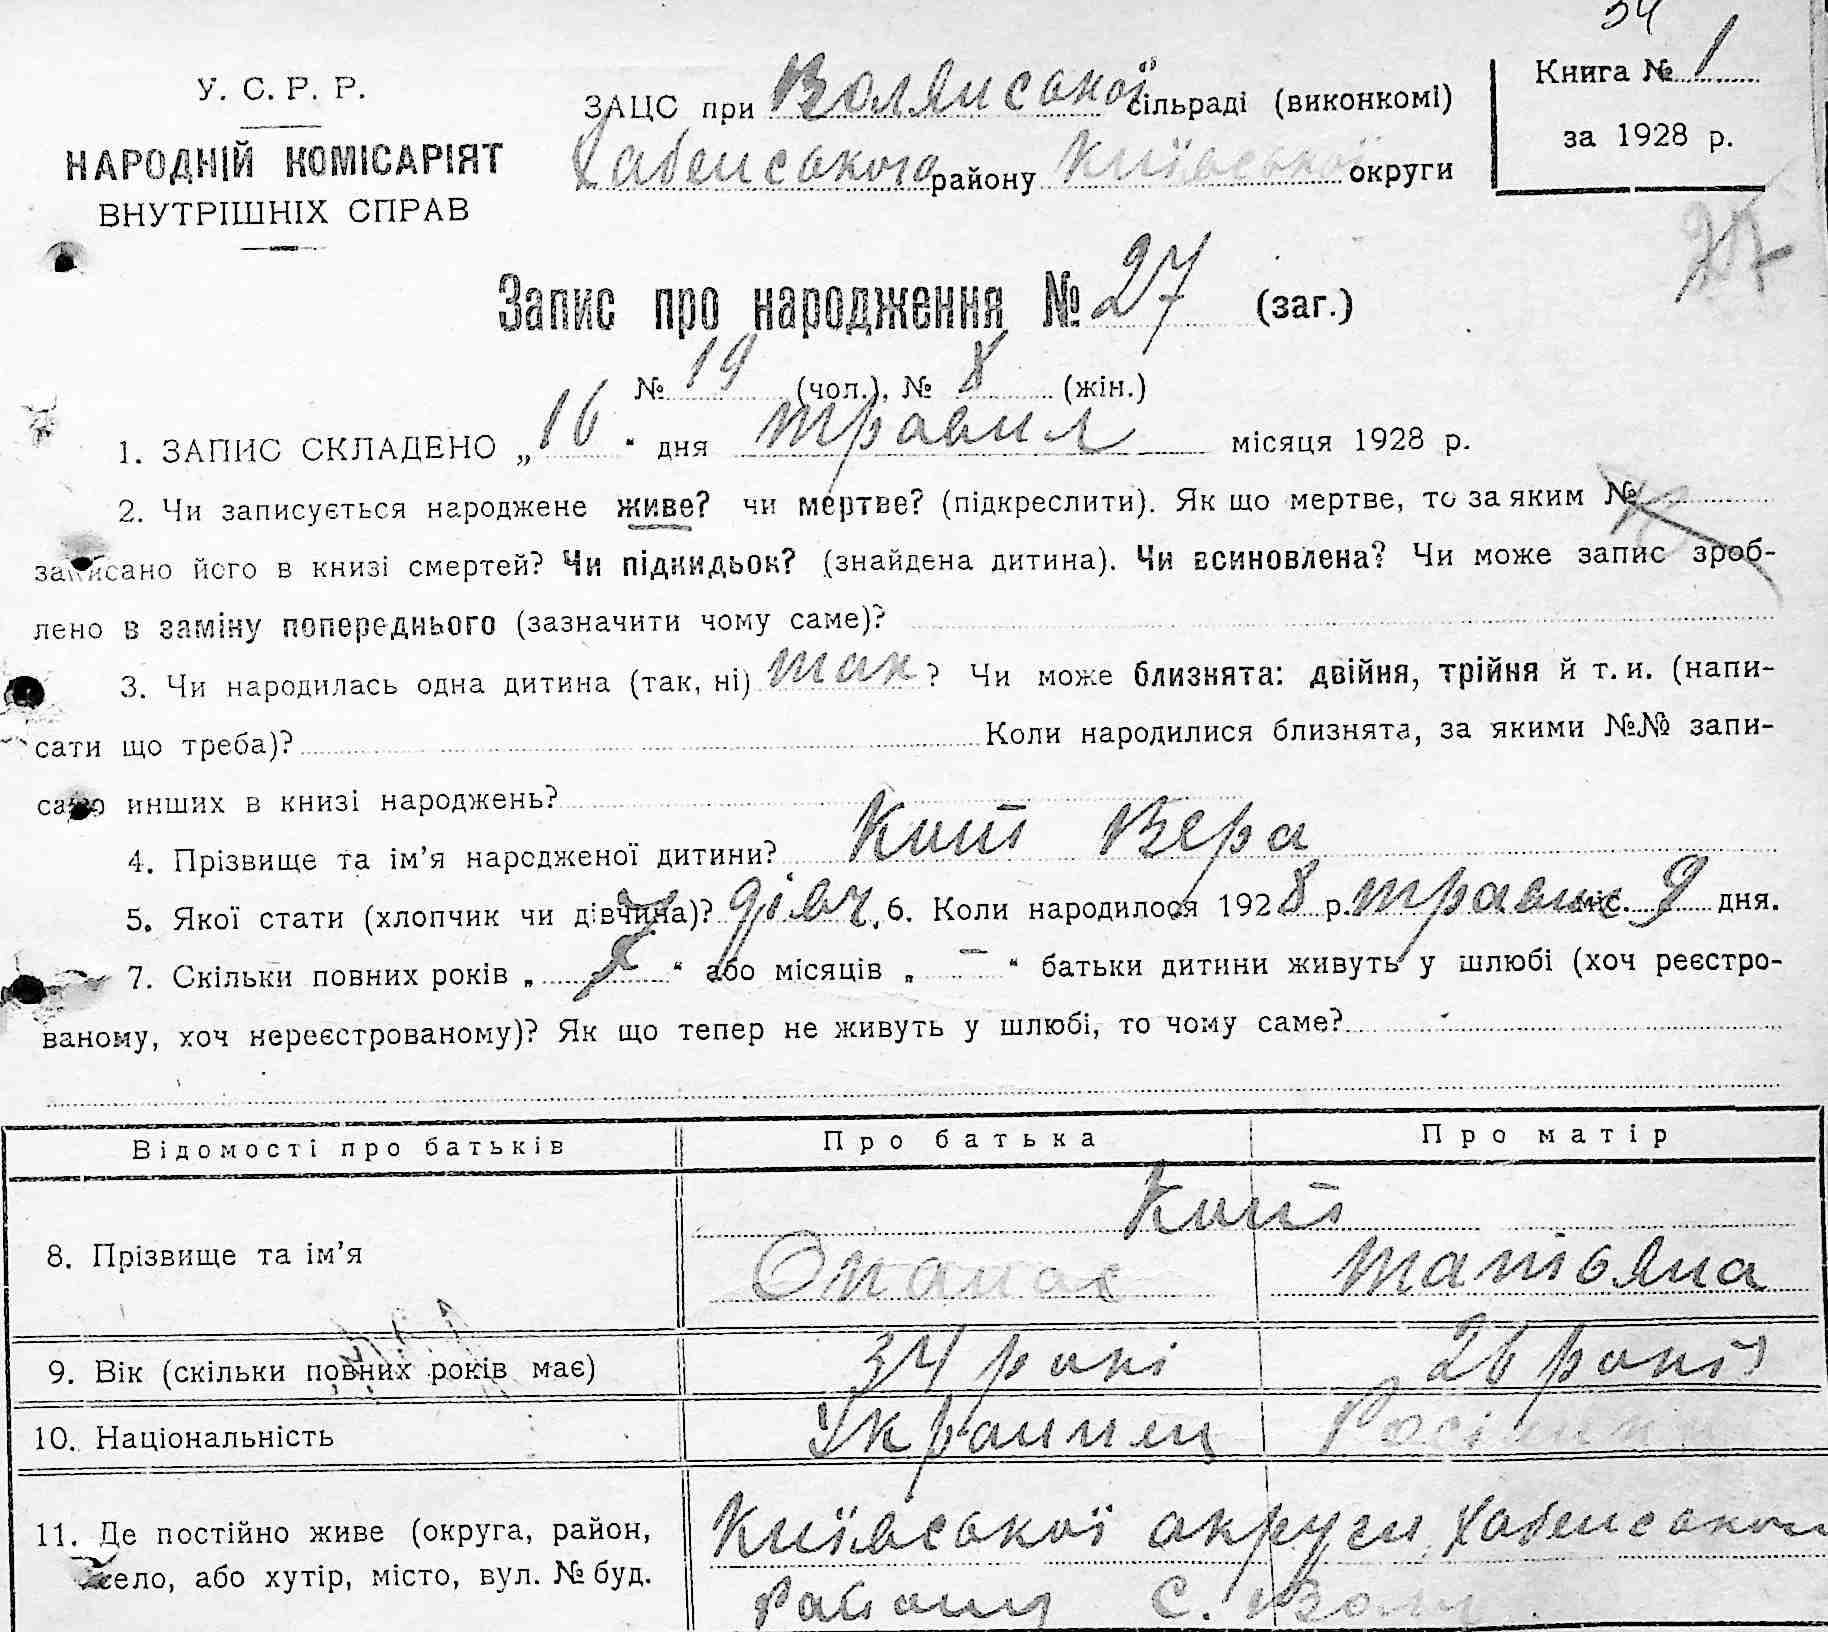 34
У. С. Р. Р.
НАРОДНІЙ КОМІСАРІЯТ
ВНУТРІШНІХ СПРАВ
ЗАЦС при Волянської сільраді (виконкомі)
Хабенського району Київської округи
Книга № 1
за 1928 р.
27
Запис про народження № 27 (заг.)
№ 19 (чол.), № 8 (жін.)
1. ЗАПИС СКЛАДЕНО „16“ дня травня місяця 1928 р.
2. Чи записується народжене живе? чи мертве? (підкреслити). Як що мертве, то за яким №
записано його в книзі смертей? Чи підкидьок? (знайдена дитина). Чи всиновлена? Чи може запис зроб-
лено в заміну попереднього (зазначити чому саме)?
3. Чи народилась одна дитина (так, ні) так ? Чи може близнята: двійня, трійня й т. и. (напи-
сати що треба)? Коли народилися близнята, за якими №№ запи-
сано инших в книзі народжень?
4. Прізвище та ім’я народженої дитини? Кот Вера
5. Якої стати (хлопчик чи дівчина)? дівч. 6. Коли народилося 1928 р. травня міс. 9 дня.
7. Скільки повних років „ “ або місяців „ – “ батьки дитини живуть у шлюбі (хоч реєстро-
ваному, хоч нереєстрованому)? Як що тепер не живуть у шлюбі, то чому саме?
Відомості про батьків Про батька Про матір
Кот
8. Прізвище та ім’я Опанас Татьяна
9. Вік (скільки повних років має) 34 рокі 26 рокі
10. Національність Украинец
11. Де постійно живе (округа, район, Київської округи, Хабенського
село, або хутір, місто, вул. № буд. району С. Воли